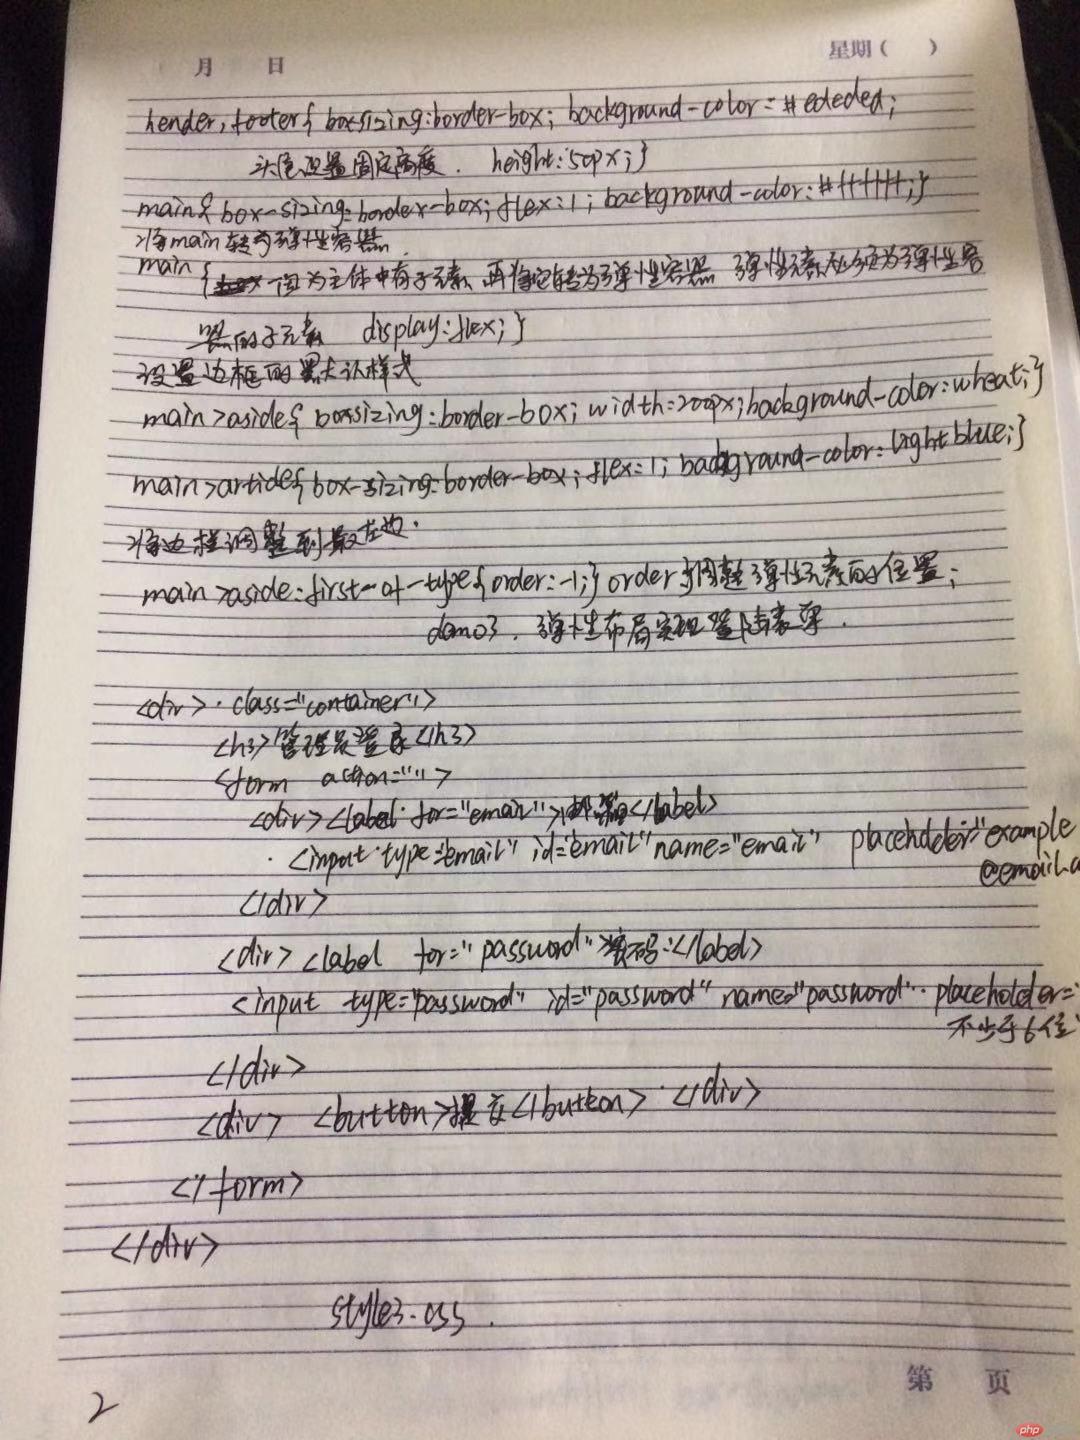 月 日 星期( )
header, footer{ boxsizing:border-box; background-color:#ededed;
头尾设置固定高度. height:50px;}
main{ box-sizing:border-box; flex:1; background-color:#ffffff;}
将main转为弹性容器
main{ 因为主体中有子元素 再将它转为弹性容器 弹性元素必须为弹性容
器的子元素 display:flex;}
设置边框的默认样式
main>aside{ boxsizing:border-box; width:200px; background-color:wheat;}
main>article{ box-sizing:border-box; flex:1; background-color:lightblue;}
将边栏调整到最左边.
main>aside:first-of-type{ order:-1;} order 调整弹性元素的位置;
demo3. 弹性布局实现登陆表单.
<div> class="container">
<h3>管理员登录</h3>
<form action="">
<div><label for="email">邮箱</label>
<input type="email" id="email" name="email" placeholder="example
@email.
</div>
<div> <label for="password">密码:</label>
<input type="password" id="password" name="password" placeholder="
不少于6位"
</div>
<div> <button>提交</button> </div>
</form>
</div>
style3.css.
第 页
2
php